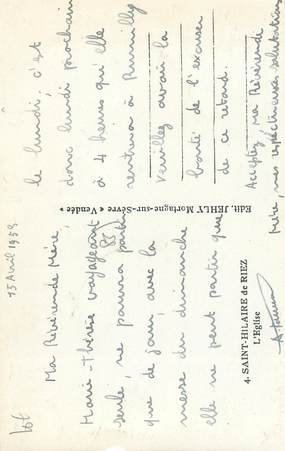 13 Avril 1958
Ma Révérende Mère,
Marie-Thérèse voyageant
seule, ne pourra partir
que de jour, avec la
messe du dimanche
elle ne peut partir que
le lundi. c'est
donc lundi prochain
à 4 heures qu'elle
rentrera à
Veuillez avoir la
bonté de l'excuser
de ce retard.
Acceptez ma Révérende
Mère, mes respectueuses salutations
85
Edit. JEHLY Mortagne-sur-Sèvre « Vendée »
4. SAINT-HILAIRE de RIEZ
L'Eglise